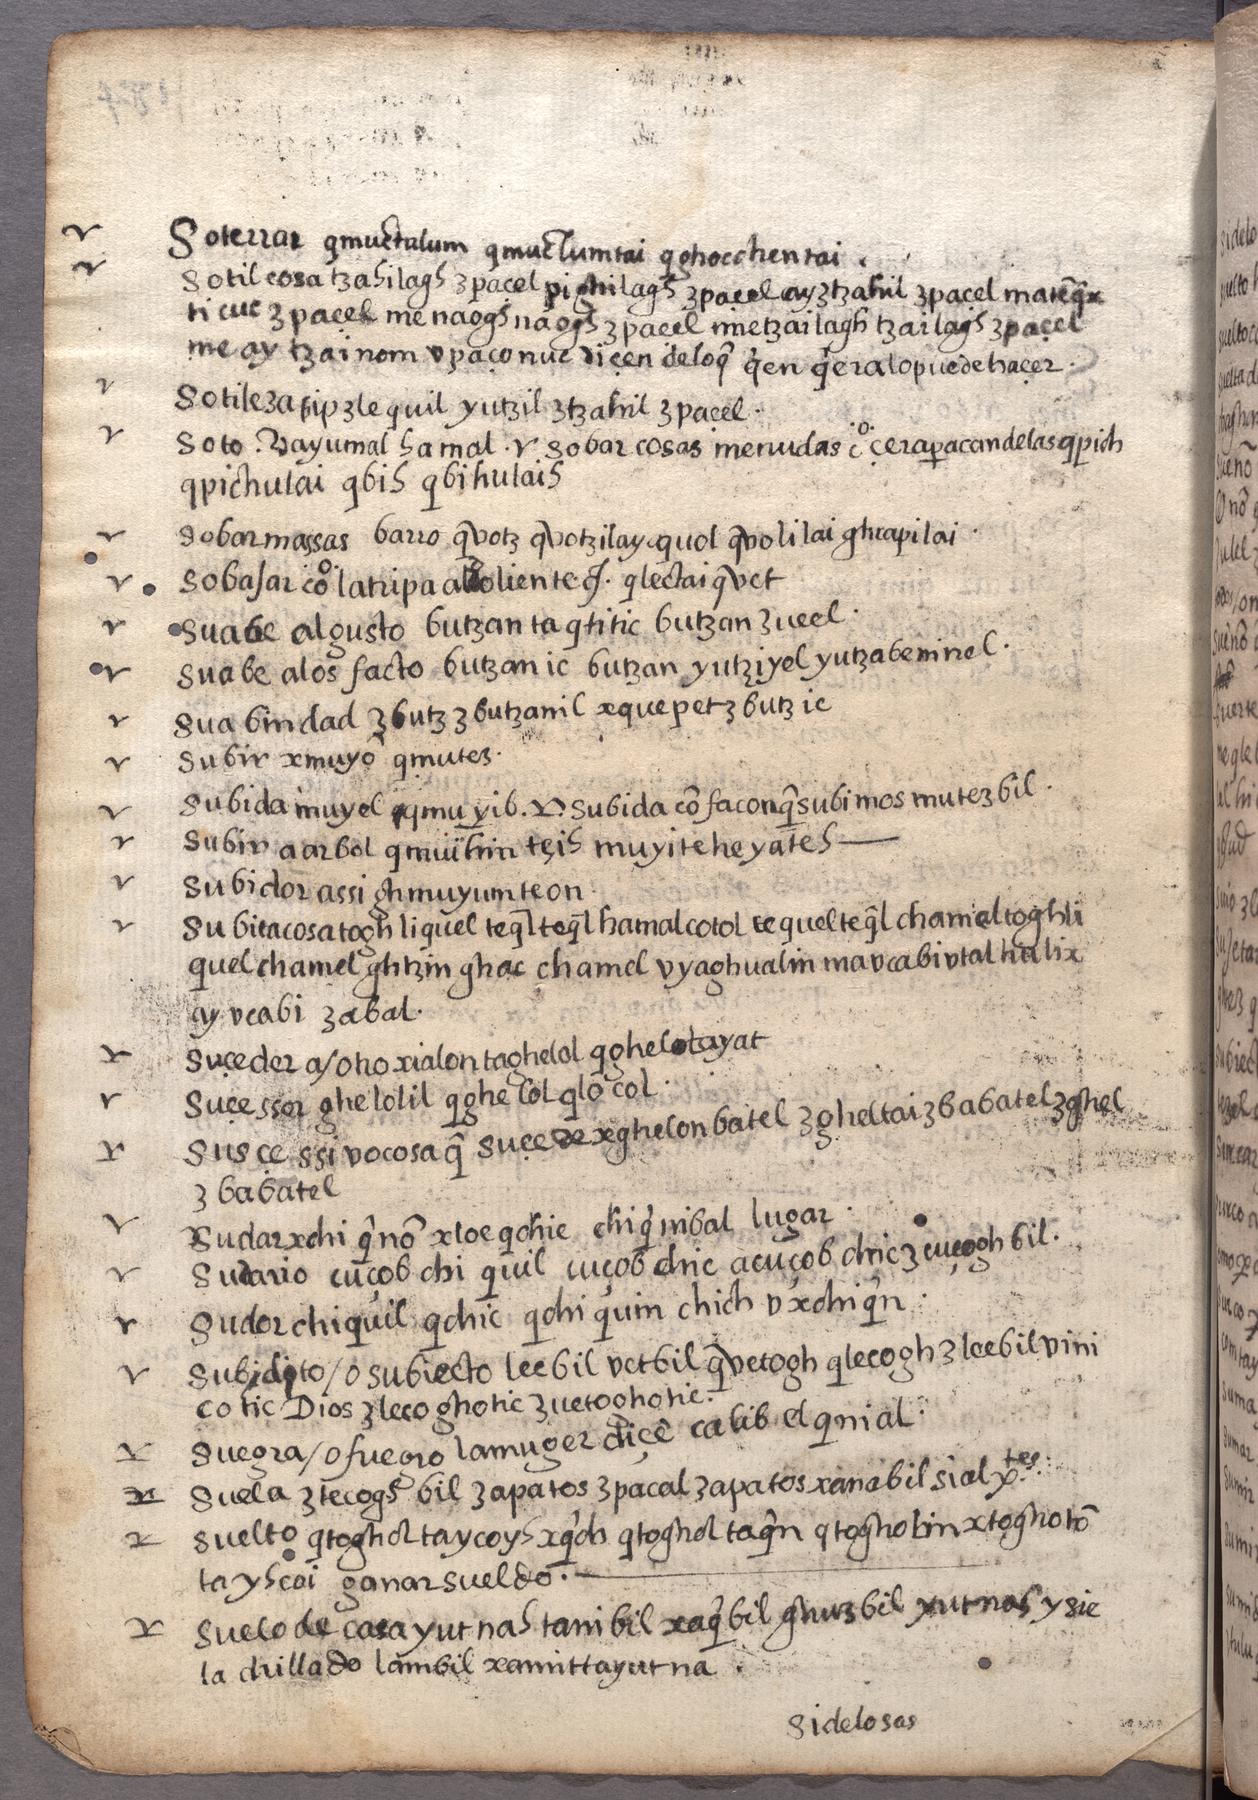 Soterrar qmuctalum qmuctumtai qghocchentai .
Sotil cosa tzahilagh ʒpacel pighilagh ʒpacel ay ʒtzahil ʒpacel
ti cuc ʒpacel me naogh naogh ʒpacel metzailagh tzailagh ʒpacel
me ay tzainom vpaçonuc diçen deloq̃ q̃en q̃eralopuedehaçer .
Sotileza sipʒlequil yutzil ʒtzahil ʒpacel .
Soto . vayumal hamal . v sobar cosas menudas çerapacandelas qpich
qpichulai qbih qbihulaih
Sobar massas barro q̃votz q̃votzilay quol q̃volilai ghrapilai .
Sobajar cõ latripa qlectai q̃vet
Suabe algusto butzan ta qtitic butzan ʒueel .
Suabe alos facto butzan ic butzan yutziyel yutzabeninel .
Suabindad ʒbutz ʒbutzanil xquepetʒbutz ic
Subir xmuyõ qmuteʒ .
Subida muyel qmuyib . v. Subida cõ faconq̃ subimos muteʒbil .
Subir a arbol qmuihin teih muyiteheyateh
Subidor assi ghmuyumteon
Subitacosa togh liquel teq̃l teq̃l hamalcotol tequel teq̃l chamel toghli
quel chamel ghtzin ghac chamel vyaghualin mavcabivtal halix
ay vcabi ʒabal .
Suçeder a/otro xialon taghelol qghelolayat
Suçessor ghelolil qghelol qlocol .
Susçessivo cosa q̃ suçede xghelon batel ʒgheltai ʒbabatel ʒghel
ʒbabatel
Sudar xchi q̃nõ xloc qchic chiq̃nibal lugar .
Sudario cuçob chi quil cuçob chic acuçob chic ʒcuçogh bil .
Sudor chiquil qchic qchiquin chich vxchiq̃n .
Subidito/o subiecto lecbil vctbil q̃vetogh qlecogh ʒlecbil vini
cotic Dios ʒlecoghotic ʒuetoghotic .
Suegra/o suegro lamuger diçẽ calib el qnial .
Suela ʒtecogh bil ʒapatos ʒpacal ʒapatos xanabil
Suelto qtoghol taycoyh xq̃ch qtoghol taq̃n qtogholin xtogholõ
ta yhcoi ganar sueldo .
Suelo de casa yut nah tanibil xaq̃bil ghuʒbil yut nah y sie
ladrillado lambil xamittayutna .
Sidelosas